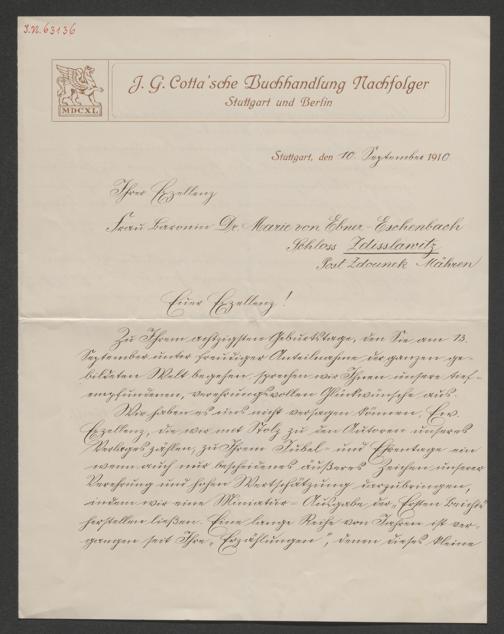 I.N. 63136
MDCXL
J. G. Cotta'sche Buchhandlung Nachfolger
Stuttgart und Berlin
Stuttgart, den 10. September 1910
Ihrer Exzellenz
Frau Baronin Dr. Marie von Ebner-Eschenbach
Schloss Zdisslawitz
Post Zdounek Mähren
Euer Exzellenz!
Zu Ihrem achtzigsten Geburtstage, den Sie am 13.
September unter freudiger Anteilnahme der ganzen ge-
bildeten Welt begehen, sprechen wir Ihnen unsere tief-
empfundenen, verehrungsvollen Glückwünsche aus.
Wir haben es uns nicht versagen können, Ew.
Exzellenz, die wir mit Stolz zu den Autoren unseres
Verlages zählen, zu Ihrem Jubel- und Ehrentage ein
wenn auch nur bescheidenes äußeres Zeichen unserer
Verehrung und hohen Wertschätzung darzubringen,
indem wir eine Miniatur-Ausgabe der „Ersten Beichte“
herstellen ließen. Eine lange Reihe von Jahren ist ver-
gangen seit Ihre „Erzählungen“, denen dieses kleine